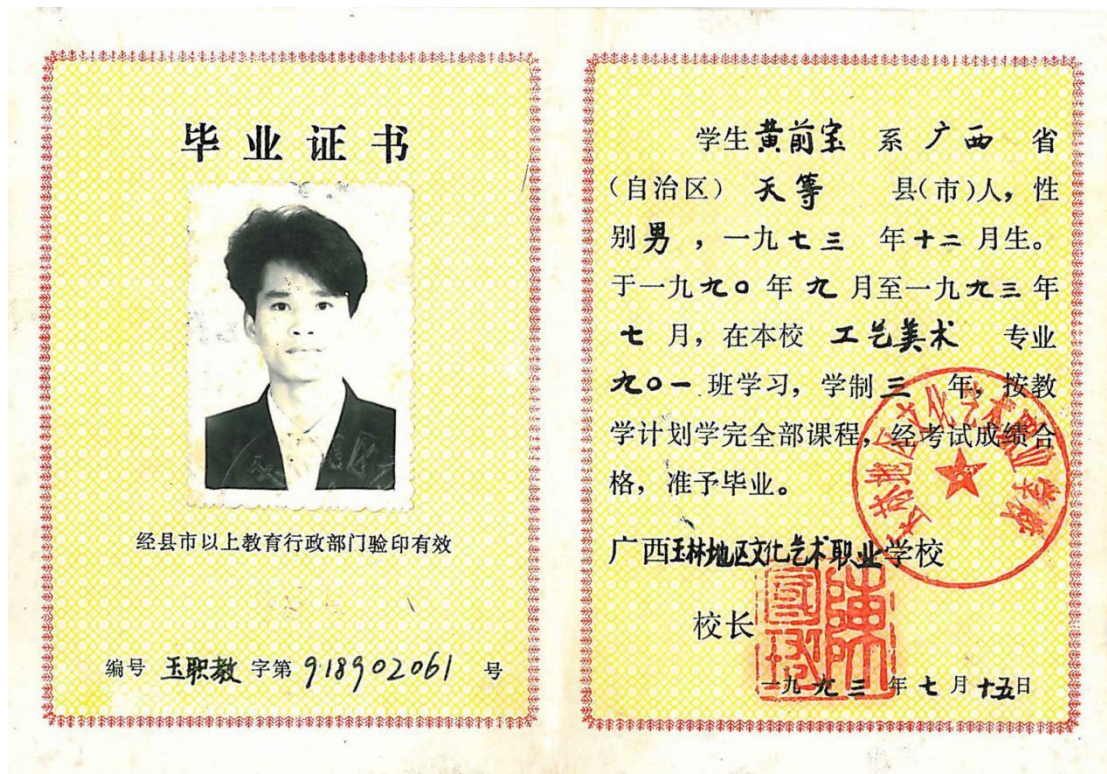 毕业证书
经县市以上教育行政部门验印有效
编号 玉职教 字第 918902061 号
学生黄前宝 系 广西 省
(自治区) 天等 县(市)人,性
别男 ,一九七三 年十二月生。
于一九九〇年九月至一九九三年
七月,在本校 工艺美术 专业
九〇一班学习,学制三 年,按教
学计划学完全部课程,经考试成绩合
格,准予毕业。
广西玉林地区文化艺术职业学校
校长
一九九三年七月十五日